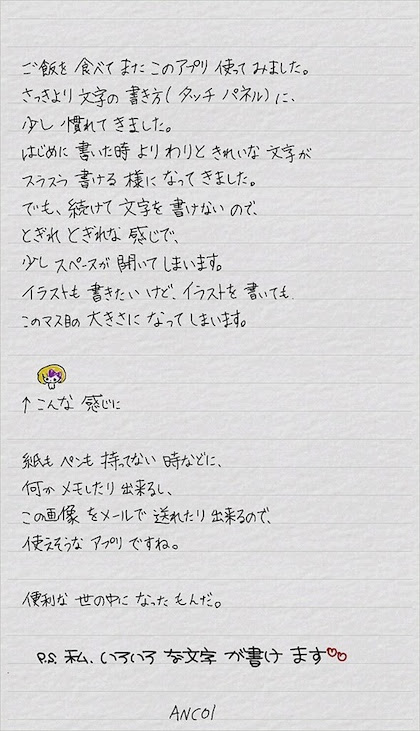 ご飯を食べてまたこのアプリ使ってみました。
さっきより文字の書き方(タッチパネル)に、
少し慣れてきました。
はじめに書いた時よりわりときれいな文字が
スラスラ書ける様になってきました。
でも、続けて文字を書けないので、
とぎれとぎれな感じで、
少しスペースが開いてしまいます。
イラストも書きたいけど、イラストを書いても
このマス目の大きさになってしまいます。
↑こんな感じに
紙もペンも持ってない時などに、
何かメモしたり出来るし、
この画像をメールで送れたり出来るので、
使えそうなアプリですね。
便利な世の中になったもんだ。
P.S. 私、いろいろな文字が書けます
ANCOI